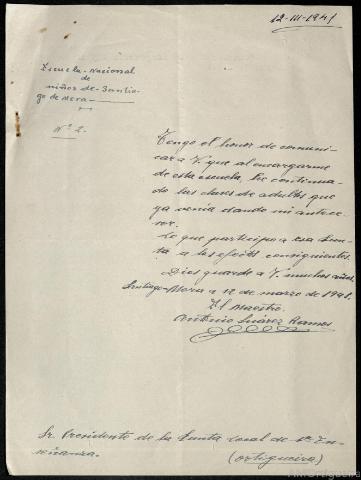 12-III-1941
Escuela Nacional
de
niños de Santia-
go de Mera
Nº 2.
Tengo el honor de comuni-
car a V. que al encargarme
de esta escuela, he continua-
do las clases de adultos que
ya venía dando mi antece-
sor.
Lo que participo a esa Jun-
ta a los efectos consiguientes.
Dios guarde a V. muchos años.
Santiago-Mera a 12 de marzo de 1941.
El Maestro.
Antonio Suárez Ramos
Sr. Presidente de la Junta Local de 1ª En-
señanza.
(Ortigueira)